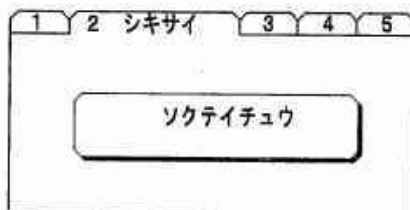 1 2 シキサイ 3 4 5
ソクテイチュウ